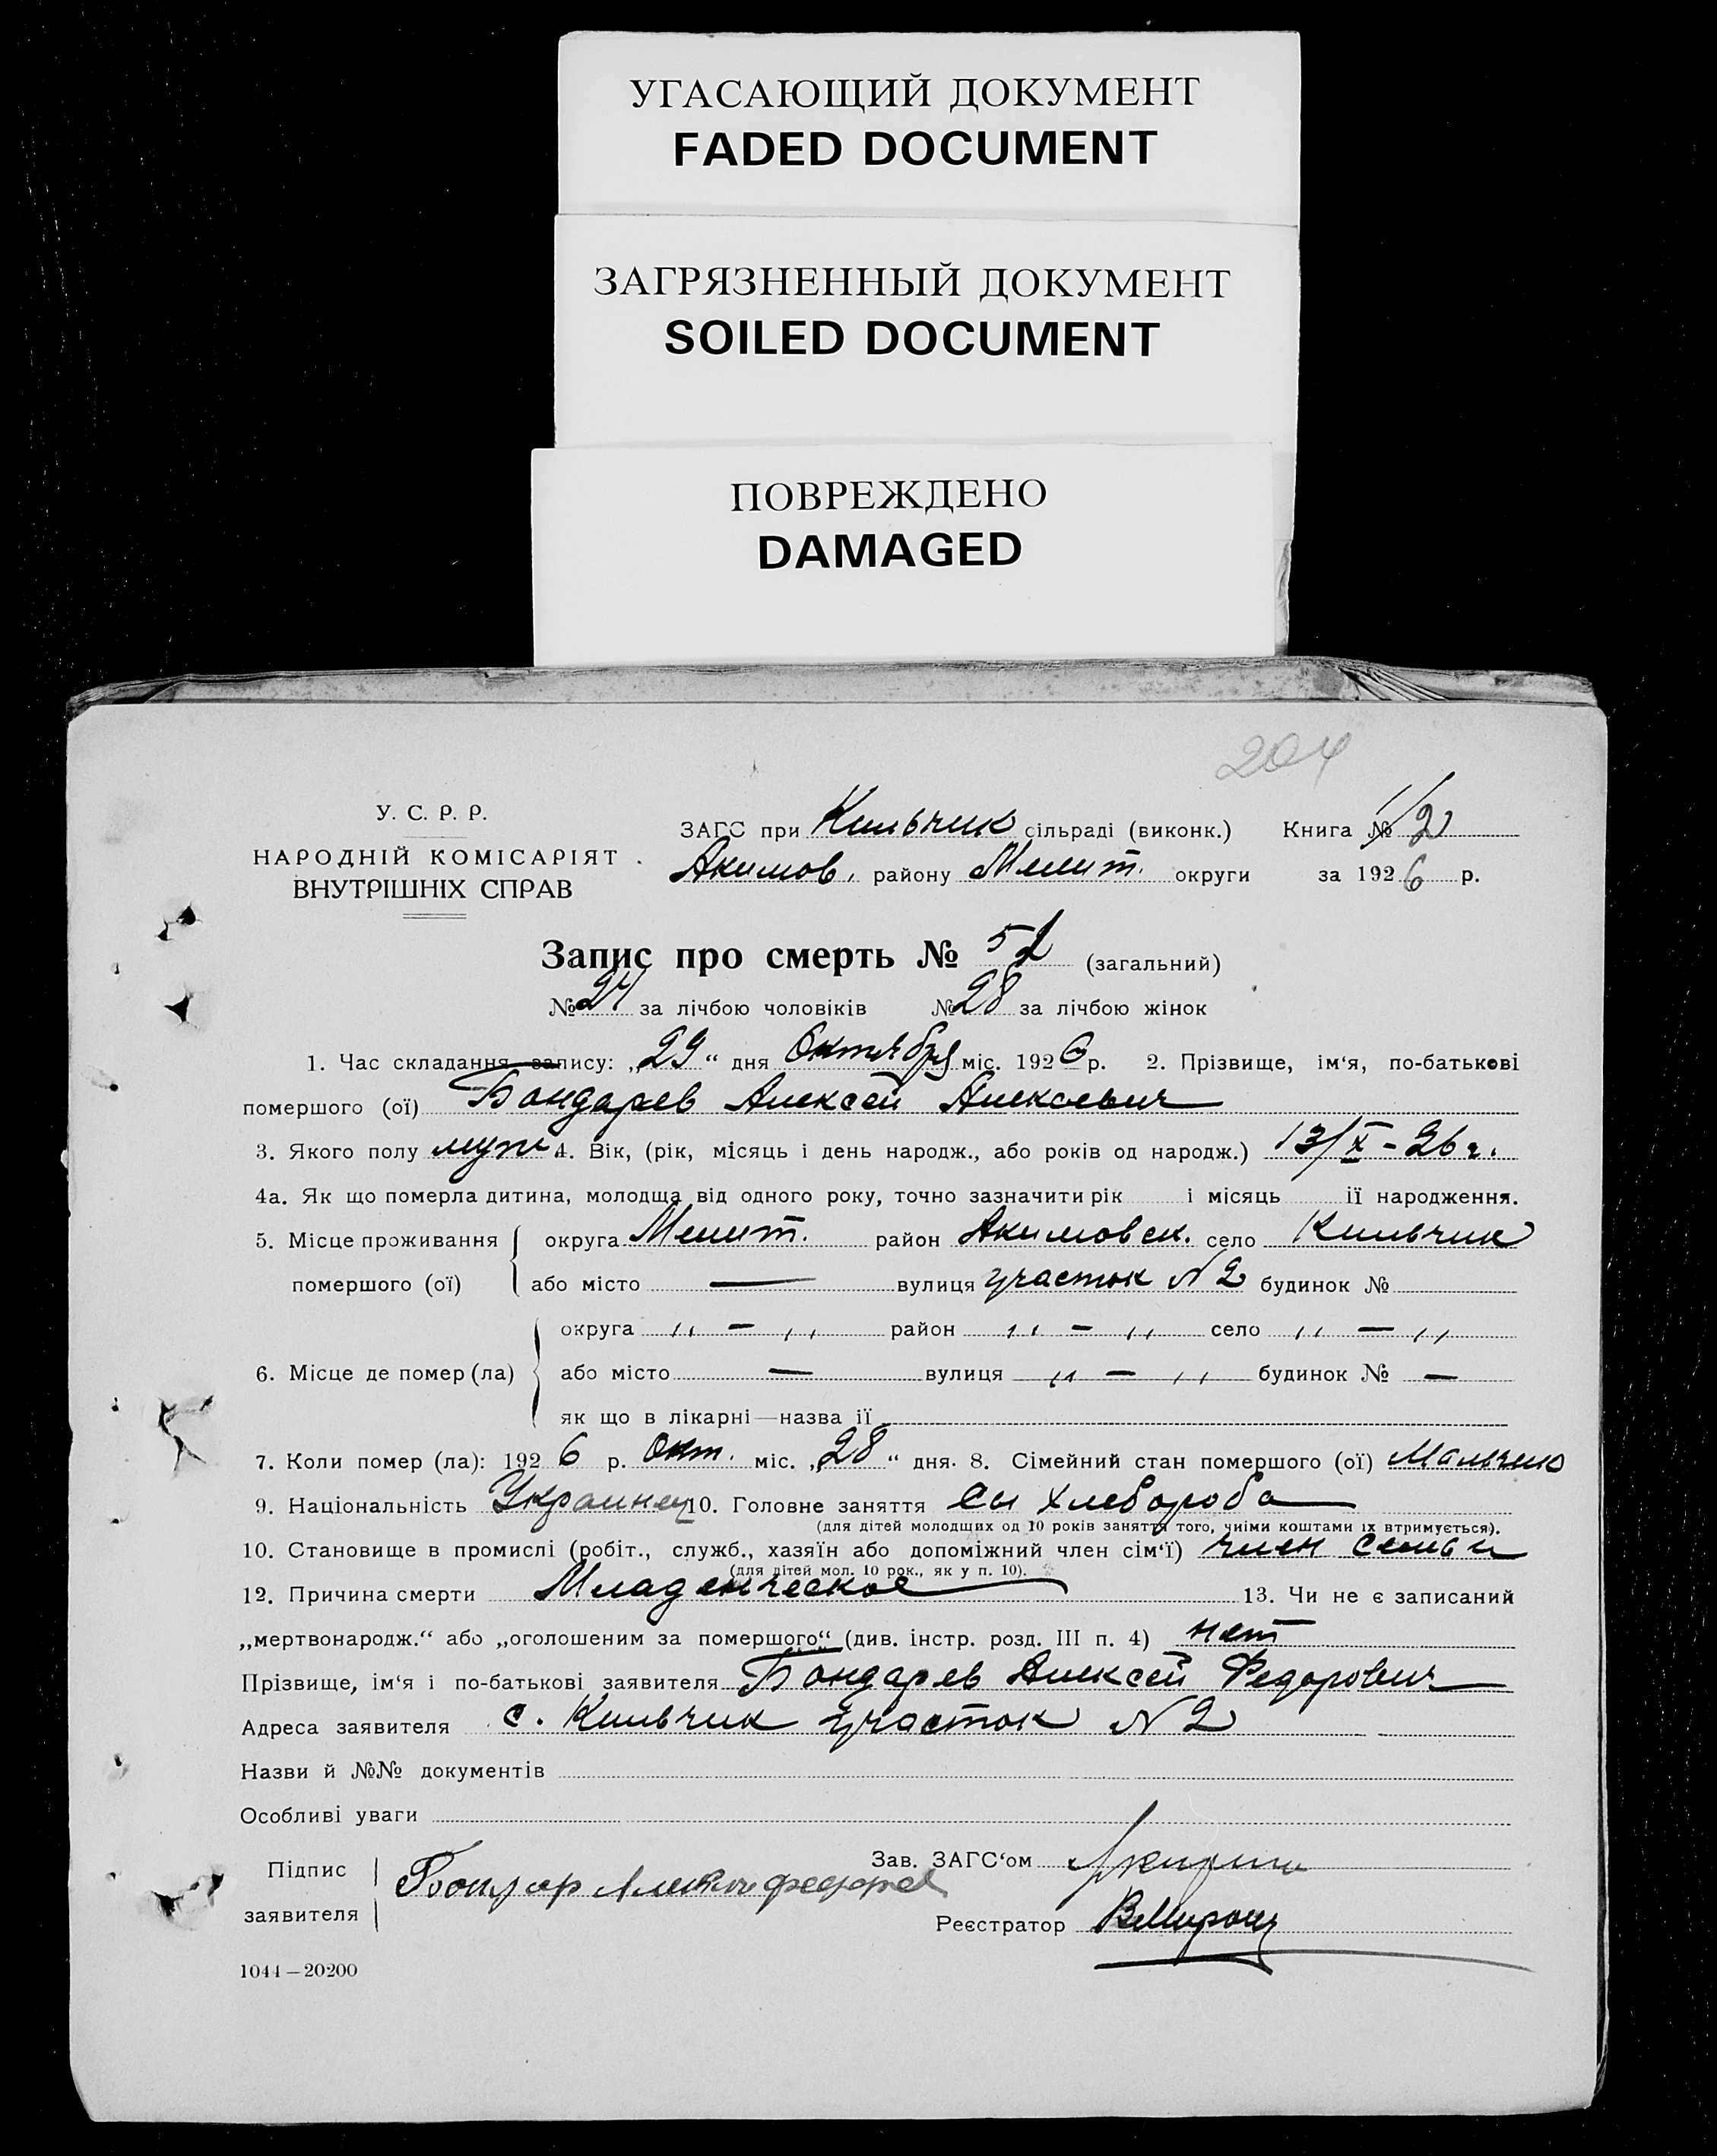 УГАСАЮЩИЙ ДОКУМЕНТ
FADED DOCUMENT
ЗАГРЯЗНЕННЫЙ ДОКУМЕНТ
SOILED DOCUMENT
ПОВРЕЖДЕНО
DAMAGED
204
У. С. Р. Р.
НАРОДНІЙ КОМІСАРІЯТ
ВНУТРІШНІХ СПРАВ
ЗАГС при Кильчик сільраді (виконк.) Книга № 2
Акимов. району Мелит. округи за 1926 р.
Запис про смерть № 52 (загальний)
№ 24 за лічбою чоловіків № 28 за лічбою жінок
1. Час складання запису: „29“ дня Октября міс. 1926 р. 2. Прізвище, ім‘я, по-батькові
помершого (ої) Бондарев Алексей Алексеевич
3. Якого полу муж 4. Вік, (рік, місяць і день народж., або років од народж.) 13/X - 26 г.
4а. Як що померла дитина, молодща від одного року, точно зазначити рік і місяць її народження.
5. Місце проживання округа Мелит. район Акимовск. село Кильчик
помершого (ої) або місто — вулиця участок N 2 будинок №
округа „ — „ район „ — „ село „ — „
6. Місце де помер (ла) або місто — вулиця „ — „ будинок № —
як що в лікарні—назва ії
7. Коли помер (ла): 1926 р. Окт. міс. „28“ дня. 8. Сімейний стан помершого (ої) Мальчик
9. Національність Украинец 10. Головне заняття Сы Хлебороба
(для дітей молодщих од 10 років заняття того, чиіми коштами їх втримується).
10. Становище в промислі (робіт., служб., хазяїн або допоміжний член сім‘ї) член семьи
(для дітей мол. 10 рок., як у п. 10).
12. Причина смерти Младенческое 13. Чи не є записаний
„мертвонародж.“ або „оголошеним за помершого“ (див. інстр. розд. III п. 4) нет
Прізвище, ім‘я і по-батькові заявителя Бондарев Алексей Федорович
Адреса заявителя с. Кильчик участок N 2
Назви й №№ документів
Особливі уваги
Підпис
заявителя
Зав. ЗАГС‘ом
Реєстратор
1044—20200